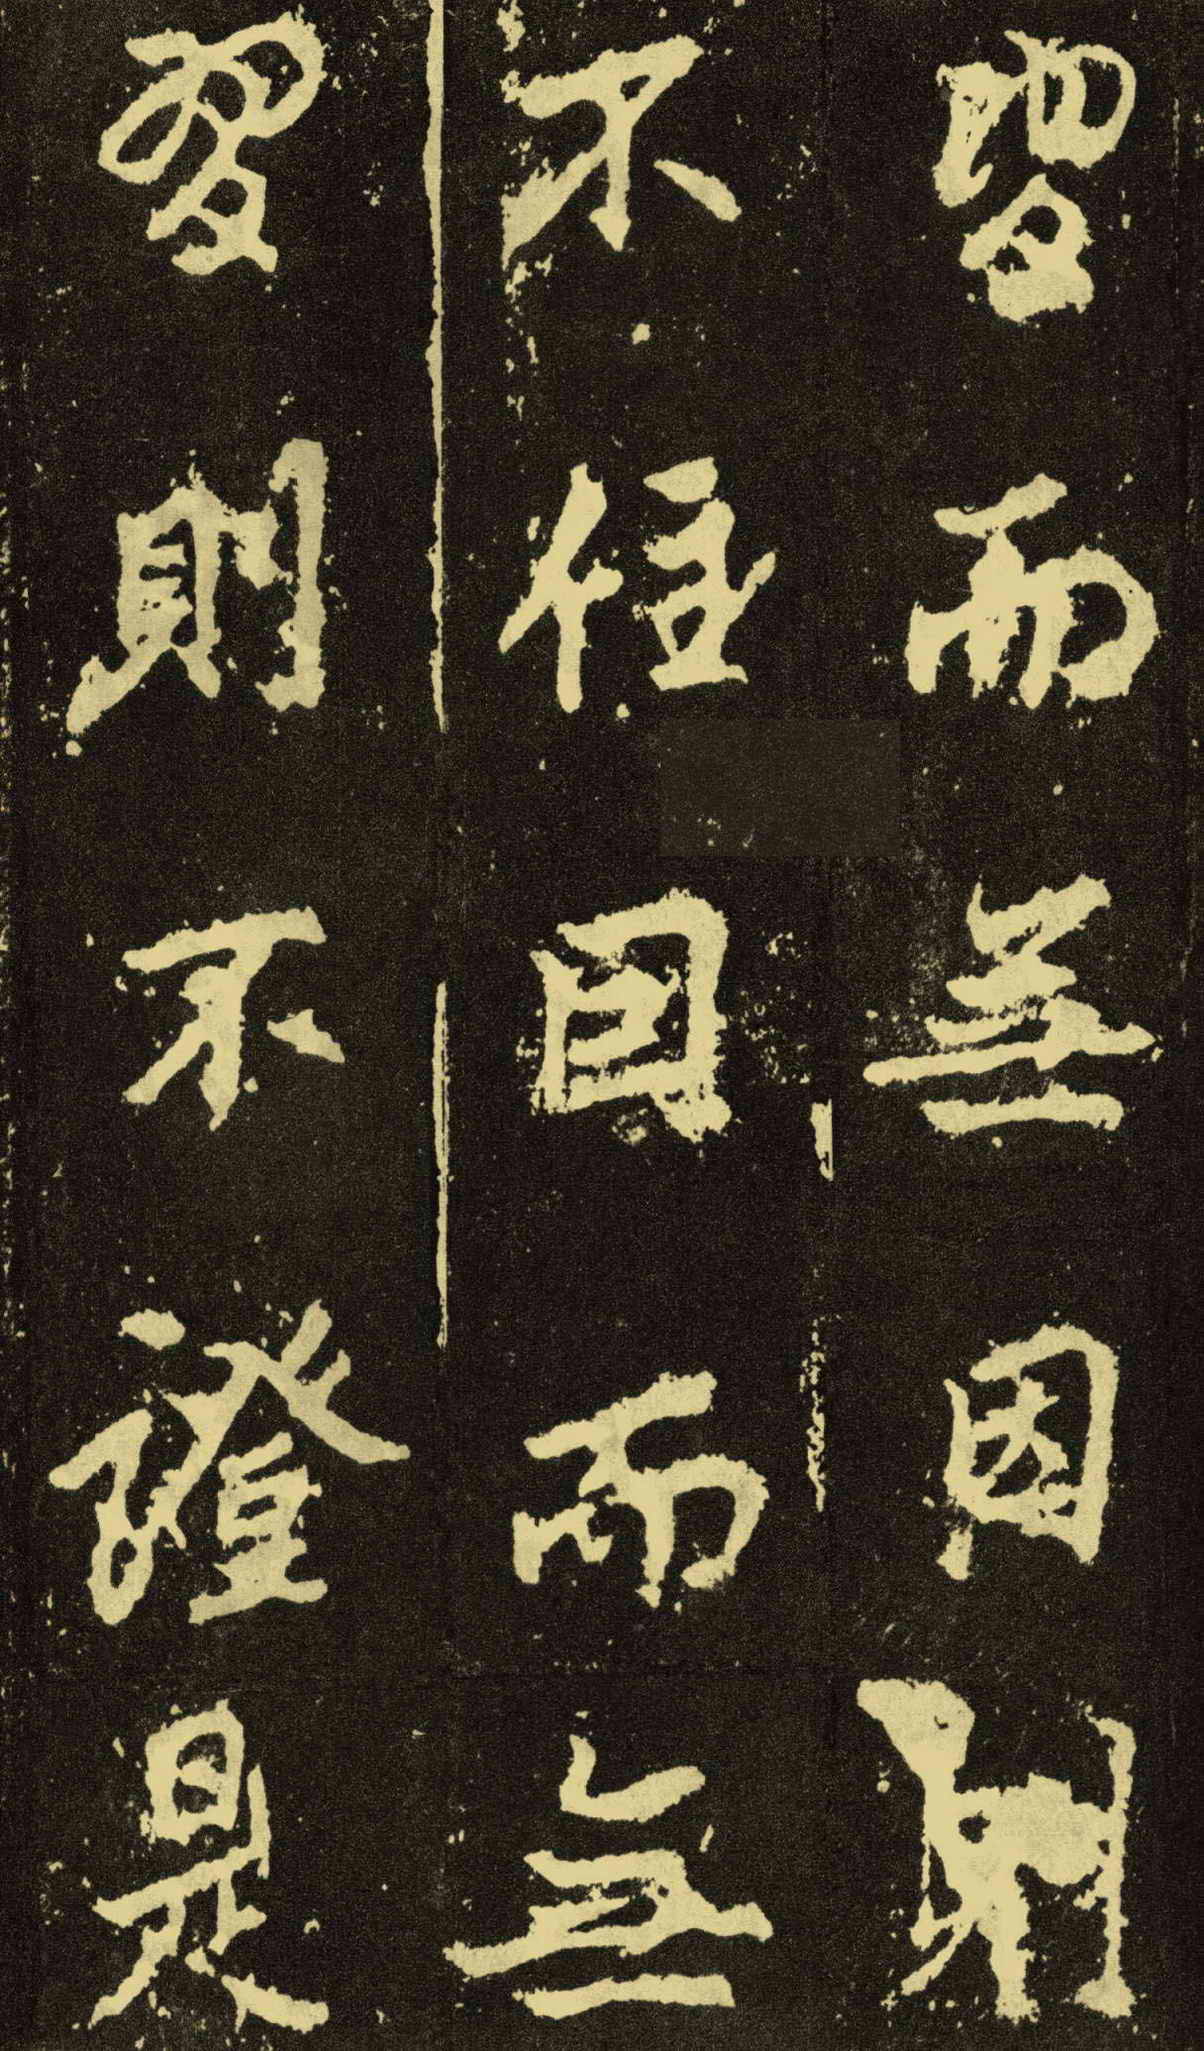 習而無因則
不住因而無
習則不證是